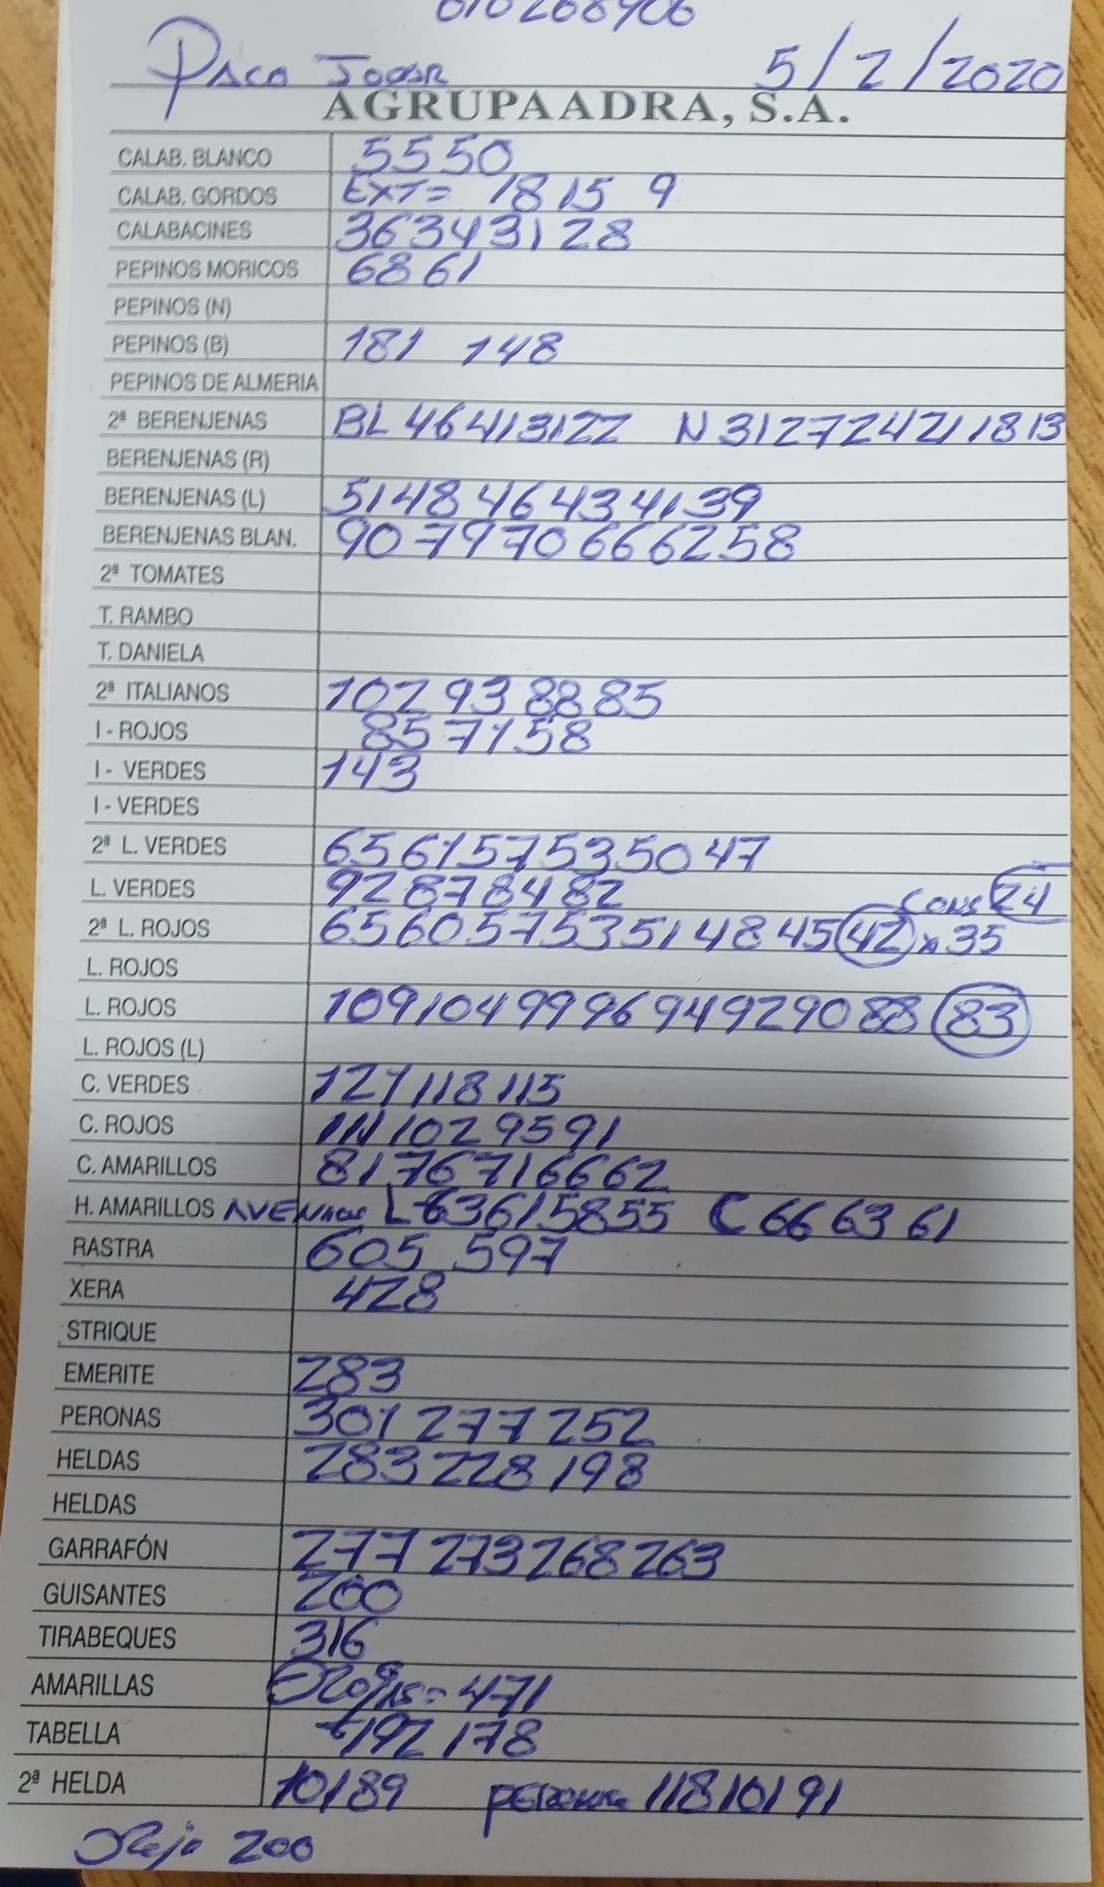 Paco Jogar 5/2/2020
AGRUPAADRA, S.A.
CALAB. BLANCO 55 50
CALAB. GORDOS EXT= 18 15 9
CALABACINES 36 34 31 28
PEPINOS MORICOS 68 61
PEPINOS (N)
PEPINOS (B) 181 148
PEPINOS DE ALMERIA
2ª BERENJENAS BL 46 41 31 22 N 31 27 24 21 18 13
BERENJENAS (R)
BERENJENAS (L) 51 48 46 43 41 39
BERENJENAS BLAN. 90 79 70 66 62 58
2ª TOMATES
T. RAMBO
T. DANIELA
2ª ITALIANOS 102 93 88 85
I - ROJOS 85 71 58
I - VERDES 143
I - VERDES
2ª L. VERDES 65 61 57 53 50 47
L. VERDES 92 87 84 82 CONS 24
2ª L. ROJOS 65 60 57 53 51 48 45 42 x 35
L. ROJOS
L. ROJOS 109 104 99 96 94 92 90 88 83
L. ROJOS (L)
C. VERDES 121 118 115
C. ROJOS 111 102 95 91
C. AMARILLOS 81 76 71 66 62
H. AMARILLOS L 63 61 58 55 C 66 63 61
RASTRA 605 597
XERA 428
STRIQUE
EMERITE 283
PERONAS 301 277 252
HELDAS 283 228 198
HELDAS
GARRAFÓN 277 273 268 263
GUISANTES 200
TIRABEQUES 316
AMARILLAS = 471
TABELLA 192 178
2ª HELDA 101 89 PERONA 118 101 91
Roja 200